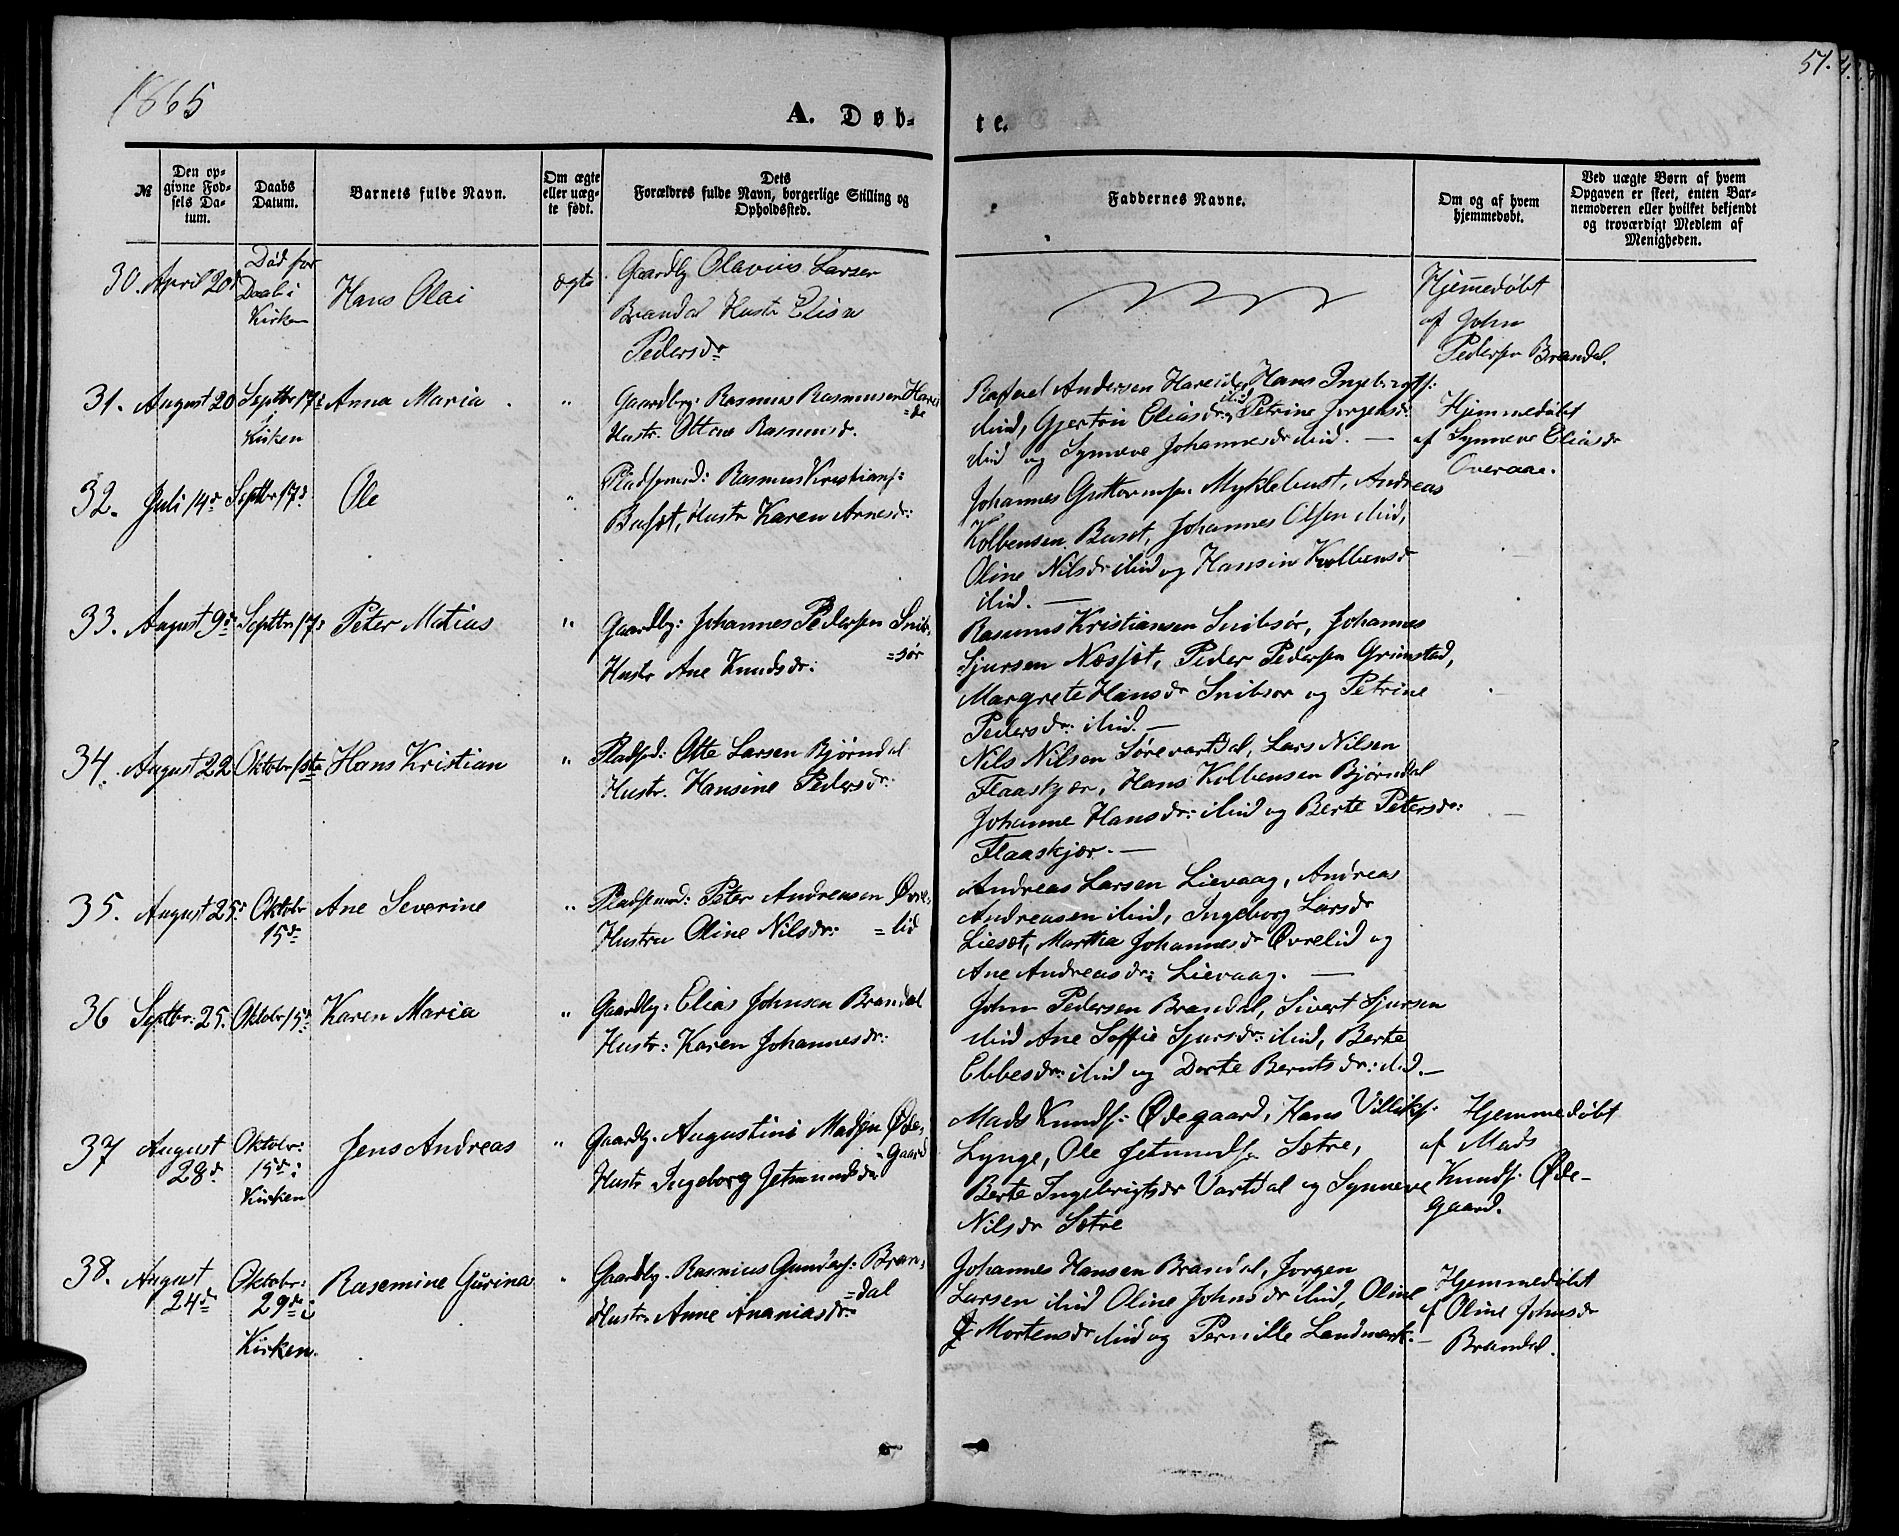 1865
51.
A. Døb-
te.
№
Den op-
givne Fød-
sels Da-
tum.
Daabs
Datum.
Barnets fulde Navn.
Om ægte
eller uæg-
te født.
Dets
Forældres fulde Navn, borgerlige Stilling og
Opholdssted.
Faddernes Navne.
Om og af hvem
hjemmedøbt.
Ved uægte Børn af hvem
Opgaven er skeet, enten Bar-
nemoderen eller hvilket bekjendt
og troværdigt Medlem af
Menigheden.
30. April 20d
Død før
Daab i
Kirken
Hans Olai
ægte
Gaardbr Olavius Larsen
Brandal Hustr Elisa
Pedersdr
Hjemmedøbt
af John
Pedersen Brandal.
31. August 20
Septbr 17d i
Kirken
Anna Maria
"
Gaardbrg: Rasmus Rasmussen Harei
=de
Hustr. Ottine Rasmusdr.
Rafael Andersen Hareide, Hans Ingebrigtsf:
ibid, Gjertrui Eliasdr ibid, Petrine Jørgensdr
ibid og Synneve Johannesdr ibid. —
Hjemmedøbt
af Synneve Eliasdr
Overaae.
32. Juli 14d
Septbr 17d
Ole
"
Pladsmd: Rasmus Kristiansf:
Busæt, Hustr Karen Arnesdr:
Johannes Guttormsen Myklebust, Andreas
Kolbensen Busæt, Johannes Olsen ibid,
Oline Nilsdr ibid og Hansine Kolbensdr
ibid. —
33. August 9d
Septbr 17d
Peter Matias
"
Gaardbr: Johannes Pedersen Snib-
=sør
Hustr Ane Knudsdr:
Rasmus Kristiansen Snibsør, Johannes
Sjursen Næssæt, Peder Pedersen Grimstad,
Margrete Hansdr Snibsør og Petrine
Pedersdr: ibid —
34. August 22
Oktobr 1ste
Hans Kristian
"
Pladsmd: Otte Larsen Bjørndal
Hustr. Hansine Pedersdr:
Nils Nilsen Sørevartdal, Lars Nilsen
Flaaskjær, Hans Kolbensen Bjørndal
Johanne Hansdr: ibid og Berte Petersdr:
Flaaskjær. —
35. August 25d
Oktobr
15d
Ane Severine
"
Pladsmd: Peter Andreasen Øvre-
=lid
Hustru Oline Nilsdr:
Andreas Larsen Lievaag, Andreas
Andreasen ibid, Ingeborg Larsdr
Liesæt, Martha Johannesdr Øvrelid og
Ane Andreasdr: Lievaag. —
36 Septbr: 25.
Oktobr 15d
Karen Maria
"
Gaardbr. Elias Johnsen Brandal
Hustr: Karen Johannesdr:
John Pedersen Brandal, Sivert Sjursen
ibid Ane Soffie Sjursdr: ibid, Berte
Ebbesdr: ibid og Dorte Berntsdr: ibid. —
37 August
28d
Oktobr:
15d i
Kirken
Jens Andreas
"
Gaardbr. Augustinus Madsen Øde-
=gaard
Hustr Ingeborg Jetmundsdr
Mads Knudsf: Ødegaard, Hans Villiksf:
Lynge, Ole Jetmundsen Sætre,
Berte Ingebrigtsdr Vartdal og Synneve
Nilsdr Sætre
Hjemmedøbt
af Mads
Knudsf: Øde-
gaard.
38. August
24d
Oktobr:
29d i
Kirken.
Rasemine Gurina
"
Gaardbr. Rasmus Gundersf: Bran-
=dal
Hustr. Anne Ananiasdr:
Johannes Hansen Brandal, Jørgen
Larsen ibid Oline Johnsdr ibid, Oline
Mortensdr ibid og Pernille Landmark. —
Hjemmedøbt
af Oline Johnsdr
Brandal.